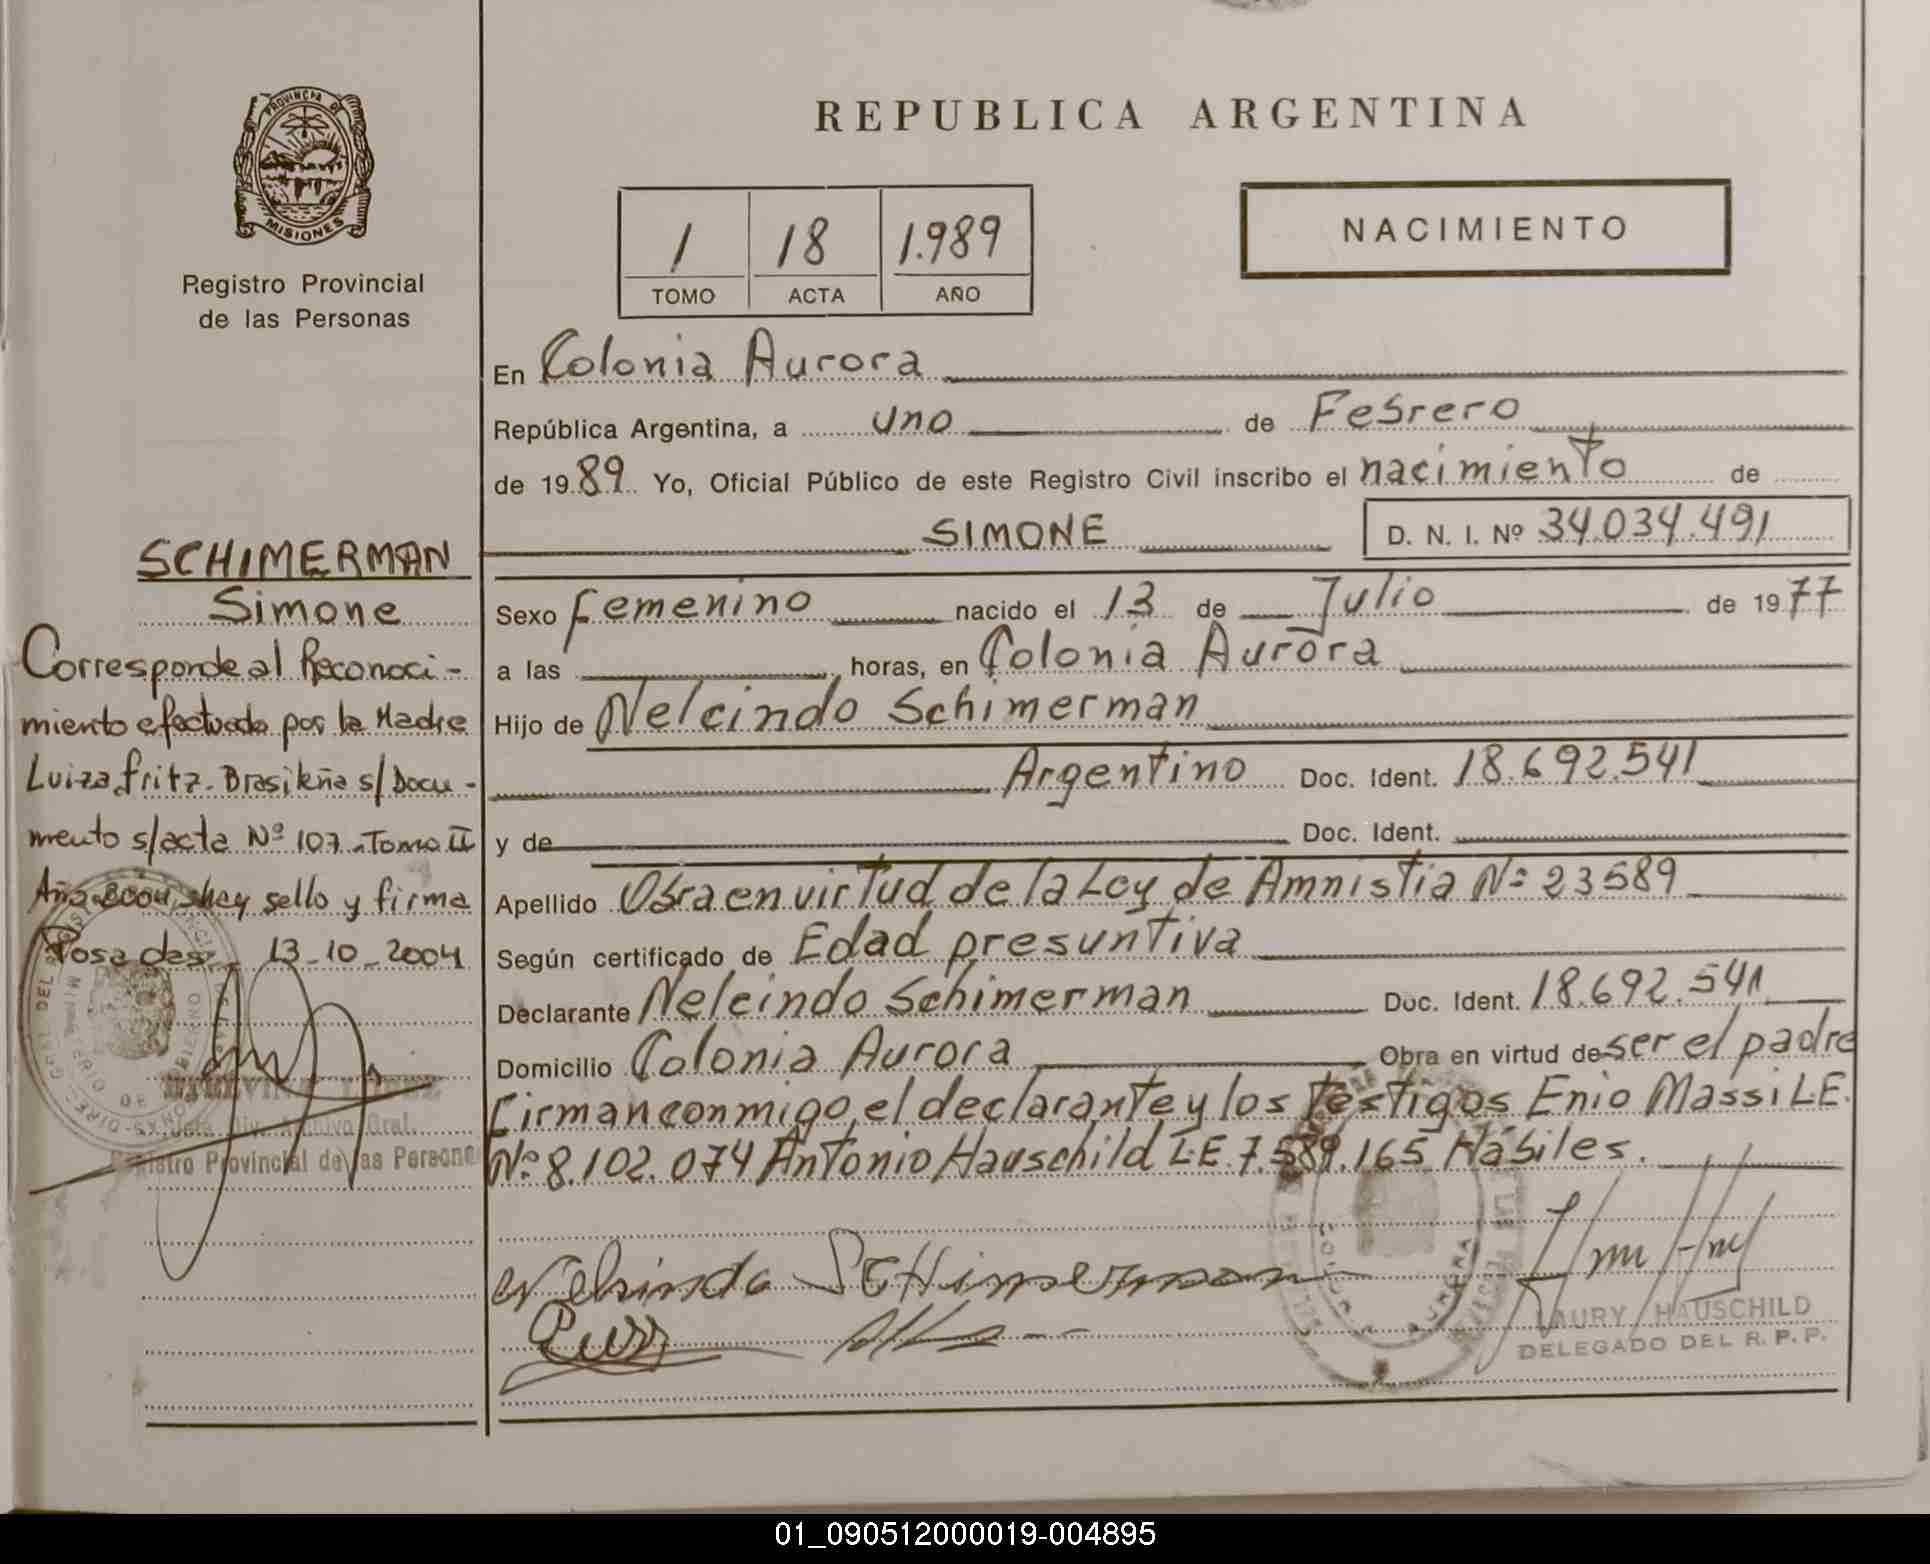 PROVINCIA DE
MISIONES
Registro Provincial
de las Personas
SCHIMERMAN
Simone
Corresponde al Reconoci-
miento efectuado por la Madre
Luiza Fritz. Brasileña s/Docu-
mento s/acta Nº 107. Tomo II
Año 2004 hay sello y firma
Posadas, 13-10-2004
Registro Provincial de las Personas
REPUBLICA ARGENTINA
1 18 1.989
TOMO ACTA AÑO
NACIMIENTO
En Colonia Aurora
República Argentina, a uno de Febrero
de 1989 Yo, Oficial Público de este Registro Civil inscribo el nacimiento de
SIMONE D. N. I. Nº 34.034.491
Sexo Femenino nacido el 13 de Julio de 1977
a las horas, en Colonia Aurora
Hijo de Nelcindo Schimerman
Argentino Doc. Ident. 18.692.541
y de Doc. Ident.
Apellido Obra en virtud de la Ley de Amnistia Nº 23589
Según certificado de Edad presuntiva
Declarante Nelcindo Schimerman Doc. Ident. 18.692.541
Domicilio Colonia Aurora Obra en virtud de ser el padre
Firman conmigo, el declarante y los testigos Enio Massi L.E.
Nº 8.102.074 Antonio Hauschild L.E. 7.589.165 Hábiles.
Nelsindo Schimerman
LAURY HAUSCHILD
DELEGADO DEL R. P. P.
01_090512000019-004895